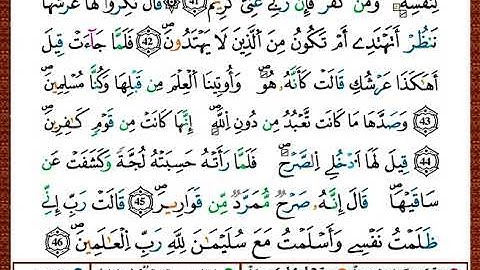 لِنَفْسِهِۦۖ وَمَن كَفَرَ فَإِنَّ رَبِّے غَنِيٌّ كَرِيمٌۖ 41 قَالَ نَكِّرُواْ لَهَا عَرْشَهَا
نَنظُرَ اَتَهْتَدِےٓ أَمْ تَكُونُ مِنَ اَلذِينَ لَا يَهْتَدُونَۖ 42 فَلَمَّا جَآءَتْ قِيلَ
أَهَٰكَذَا عَرْشُكِ قَالَتْ كَأَنَّهُۥ هُوَۖ وَأُوتِينَا اَلْعِلْمَ مِن قَبْلِهَا وَكُنَّا مُسْلِمِينَۖ
43 وَصَدَّهَا مَا كَانَت تَّعْبُدُ مِن دُونِ اِللَّهِۖ إِنَّهَا كَانَتْ مِن قَوْمٖ كَٰفِرِينَۖ
44 قِيلَ لَهَا اَدْخُلِے اِلصَّرْحَۖ فَلَمَّا رَأَتْهُ حَسِبَتْهُ لُجَّةٗ وَكَشَفَتْ عَن
سَاقَيْهَاۖ قَالَ إِنَّهُۥ صَرْحٞ مُّمَرَّدٞ مِّن قَوَارِيرَۖ 45 قَالَتْ رَبِّ إِنِّے
ظَلَمْتُ نَفْسِے وَأَسْلَمْتُ مَعَ سُلَيْمَٰنَ لِلهِ رَبِّ اِلْعَٰلَمِينَۖ 46